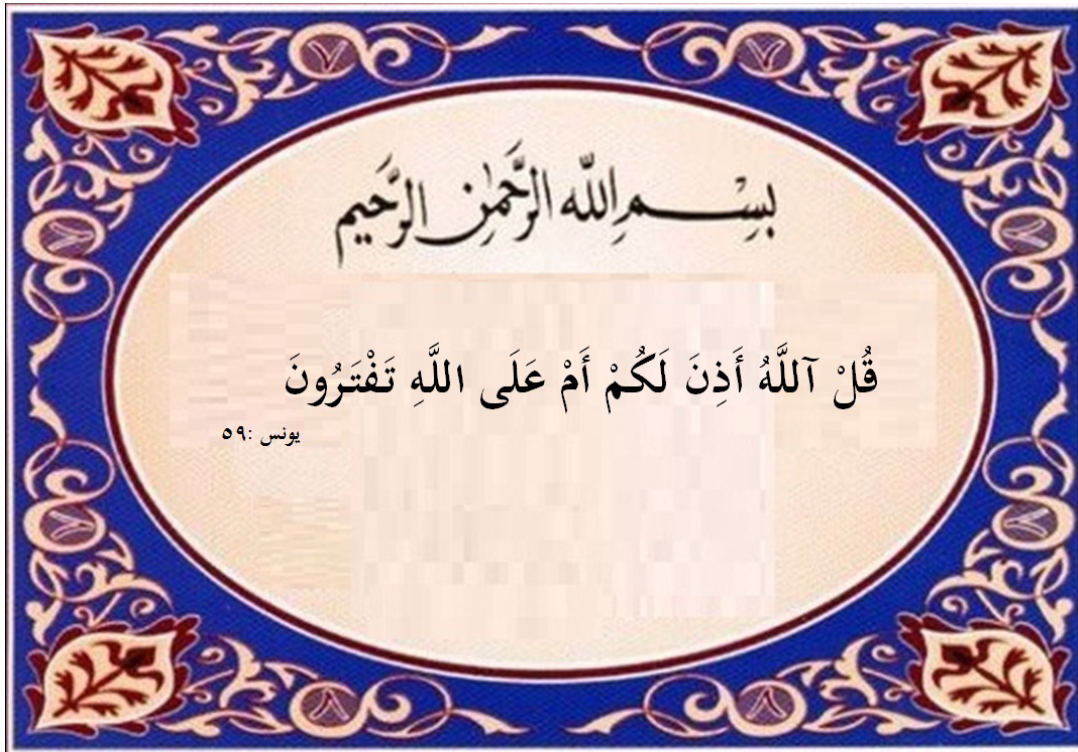 بِسْمِ اللّٰهِ الرَّحْمٰنِ الرَّحِيمِ
قُلْ آللَّهُ أَذِنَ لَكُمْ أَمْ عَلَى اللَّهِ تَفْتَرُونَ
يونس :٥٩